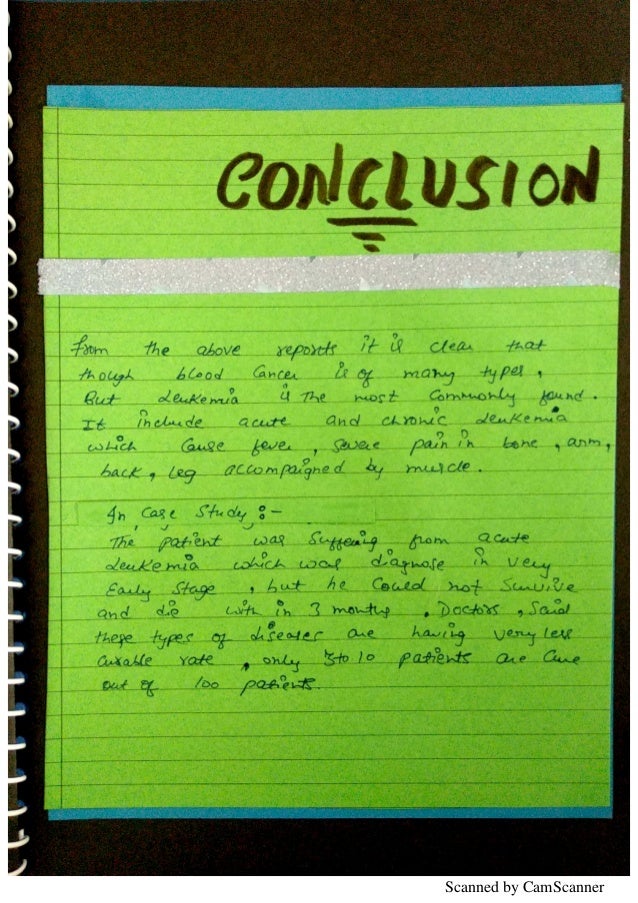 CONCLUSION
From the above reports it is clear that
though blood Cancer is of many types,
But Leukemia is The most Commonly found.
It include acute and chronic Leukemia
which Cause fever, Severe pain in bone, arm,
back, Leg accompaigned by muscle.
In Case Study :-
The patient was Suffering from acute
Leukemia which was diagnose in very
Early Stage, but he Could not Survive
and die with in 3 months. Doctors, Said
these types of diseases are having very less
curable rate, only 5 to 10 patients are Cure
out of 100 patients.
Scanned by CamScanner